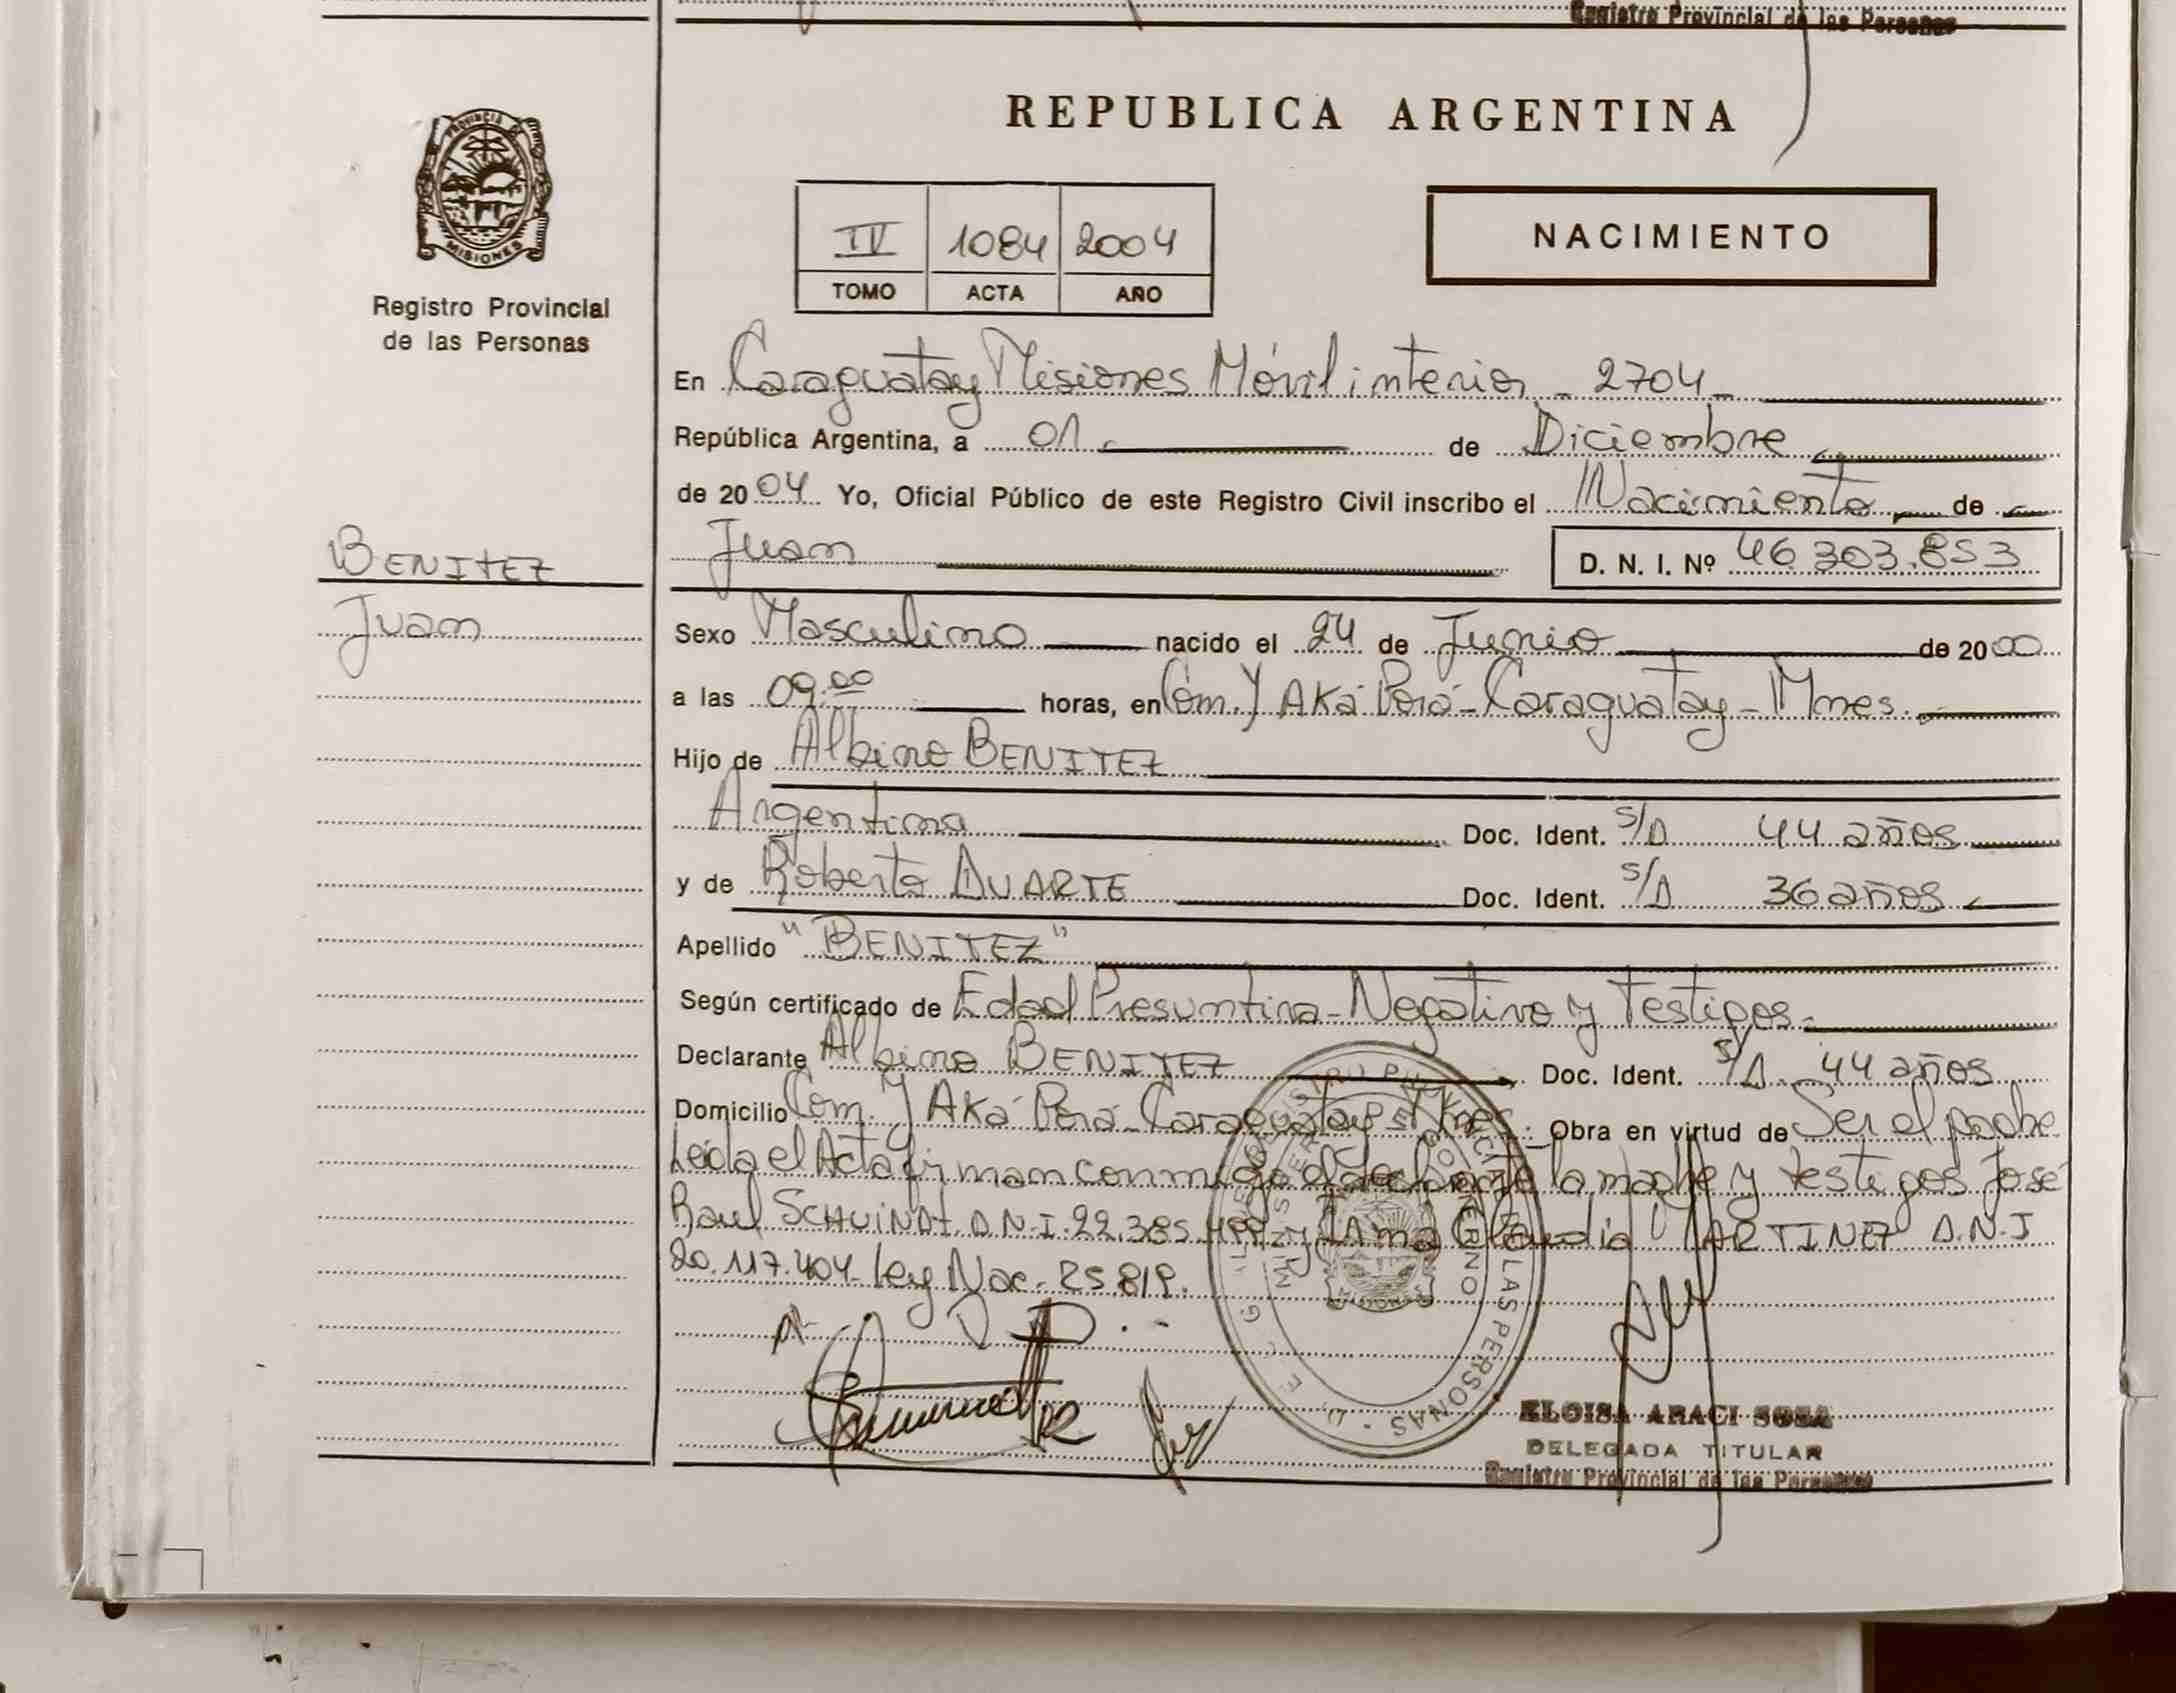 Registro Provincial de las Personas
PROVINCIA DE
MISIONES
Registro Provincial
de las Personas
REPUBLICA ARGENTINA
IV 1084 2004
TOMO ACTA AÑO
NACIMIENTO
En Caraguatay Misiones Móvil interior - 2704 -
República Argentina, a 01 de Diciembre
de 2004 Yo, Oficial Público de este Registro Civil inscribo el Nacimiento de
BENITEZ
Juan
Juan D. N. I. Nº 46.303.853
Sexo Masculino nacido el 24 de Junio de 2000
a las 09:00 horas, en Com. Y Aká Porá - Caraguatay - Mnes.
Hijo de Albino BENITEZ
Argentina Doc. Ident. S/D 44 años
y de Roberta DUARTE Doc. Ident. S/D 36 años
Apellido "BENITEZ"
Según certificado de Edad Presuntiva - Negativo y Testigos.
Declarante Albino BENITEZ Doc. Ident. S/D. 44 años
Domicilio Com. Y Aká Porá - Caraguatay - Mnes. Obra en virtud de Ser el padre
Leída el Acta firman conmigo el declarante la madre y testigos José
Raul D.N.I. 22.385.499 y Claudia MARTINEZ D.N.I
20.117.404 - Ley Nac. 25.819.
ELOISA ARACI SOSA
DELEGADA TITULAR
Registro Provincial de las Personas